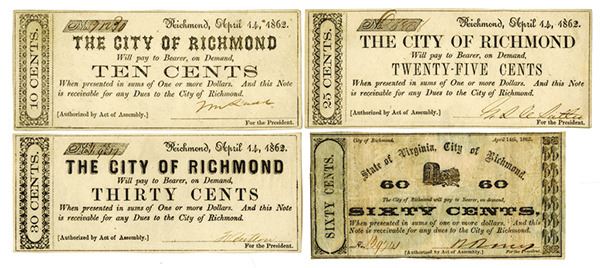 10 CENTS.
Richmond, April 14, 1862.
THE CITY OF RICHMOND
Will pay to Bearer, on Demand,
TEN CENTS
When presented in sums of One or more Dollars. And this Note
is receivable for any Dues to the City of Richmond.
[Authorized by Act of Assembly.]
For the President.
25 CENTS.
Richmond, April 14, 1862.
THE CITY OF RICHMOND
Will pay to Bearer, on Demand,
TWENTY-FIVE CENTS
When presented in sums of One or more Dollars. And this Note
is receivable for any Dues to the City of Richmond.
[Authorized by Act of Assembly.]
For the President.
30 CENTS.
Richmond, April 14, 1862.
THE CITY OF RICHMOND
Will pay to Bearer, on Demand,
THIRTY CENTS
When presented in sums of One or more Dollars. And this Note
is receivable for any Dues to the City of Richmond.
[Authorized by Act of Assembly.]
For the President.
SIXTY CENTS.
City of Richmond, April 14th, 1862.
State of Virginia, City of Richmond.
60 60
The City of Richmond will pay to Bearer, on Demand,
SIXTY CENTS.
When presented in sums of One or more Dollars. And this
Note is receivable for any Dues to the City of Richmond.
[Authorized by Act of Assembly.]
For the President.